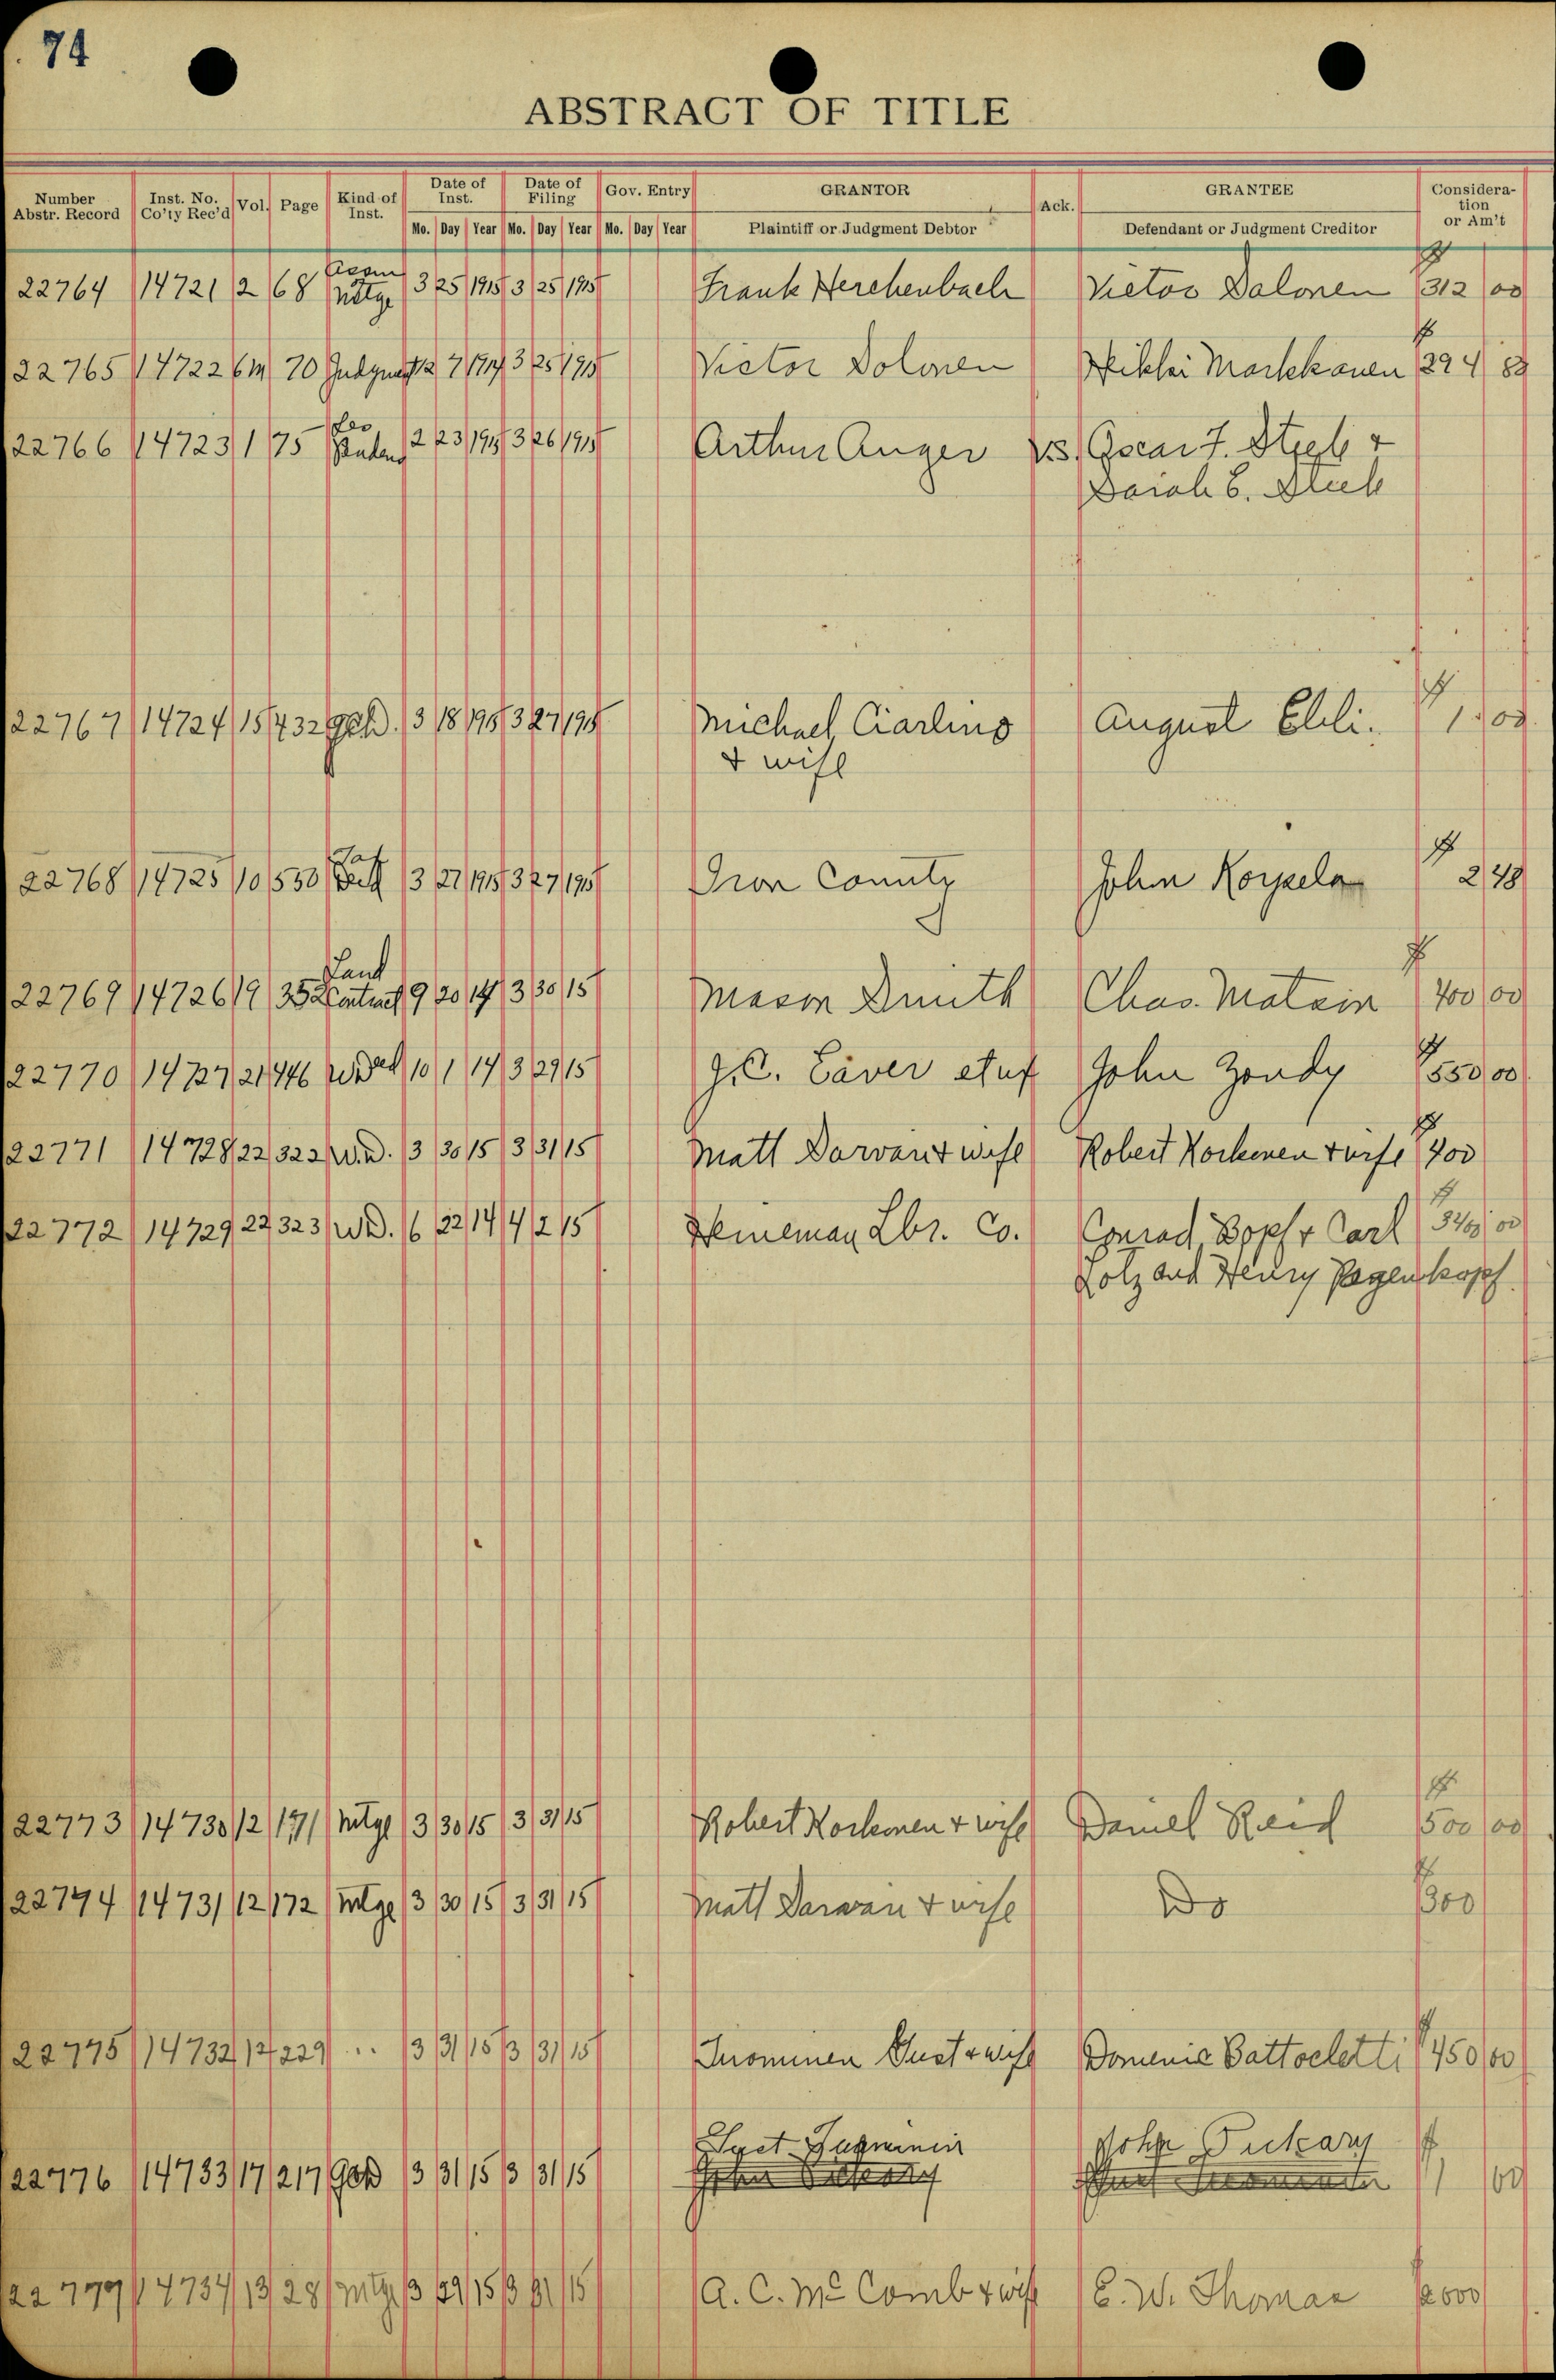 74
ABSTRACT OF TITLE
Number Abstr. Record Inst. No. Co'ty Rec'd Vol. Page Kind of Inst. Date of Inst. Date of Filing Gov. Entry GRANTOR Ack. GRANTEE Consideration or Am't
Mo. Day Year Mo. Day Year Mo. Day Year Plaintiff or Judgment Debtor Defendant or Judgment Creditor
22764 14721 2 68 Assm Mtge 3 25 1915 3 25 1915 Frank Herchenbach Victor Salonen $312 00
22765 14722 6M 70 Judgmet 12 7 1914 3 25 1915 Victor Dolonen Hikki Markkanen $294 83
22766 14723 1 75 Lis Penden 2 23 1915 3 26 1915 Arthur Auger vs. Oscar F. Steele &
Sarah E. Steele
22767 14724 15 432 QCD. 3 18 1915 3 27 1915 Michael Ciarlino August Ehli. $1.00
& wife
22768 14725 10 530 Tax Deed 3 27 1915 3 27 1915 Iron County John Korpela $2 48
22769 14726 19 352 Land Contract 9 20 14 3 30 15 Mason Smith Chas. Matain $400 00
22770 14727 21 446 W Ded 10 1 14 3 29 15 J.C. Eaver etux John Zondy $550 00
22771 14728 22 322 W.D. 3 30 15 3 31 15 Matt Darvan & wife Robert Korhonen & wife $400
22772 14729 22 323 W.D. 6 22 14 4 2 15 Heineman Lbr. Co. Conrad Bopf & Carl $3400 00
Lotz and Henry Pagenkopf.
22773 14730 12 171 Mtge 3 30 15 3 31 15 Robert Korhonen & wife Daniel Reid $500 00
22774 14731 12 172 Mtge 3 30 15 3 31 15 Matt Darwan & wife Do $300
22775 14732 12 229 .. 3 31 15 3 31 15 Tuominen Gust & wife Domenic Battocletti $450 00
22776 14733 17 217 QCD 3 31 15 3 31 15 Gust Tuominen John Pukary $1 00
22777 14734 13 28 Mtge 3 29 15 3 31 15 A. C. McComb & wife E. W. Thomas $2000